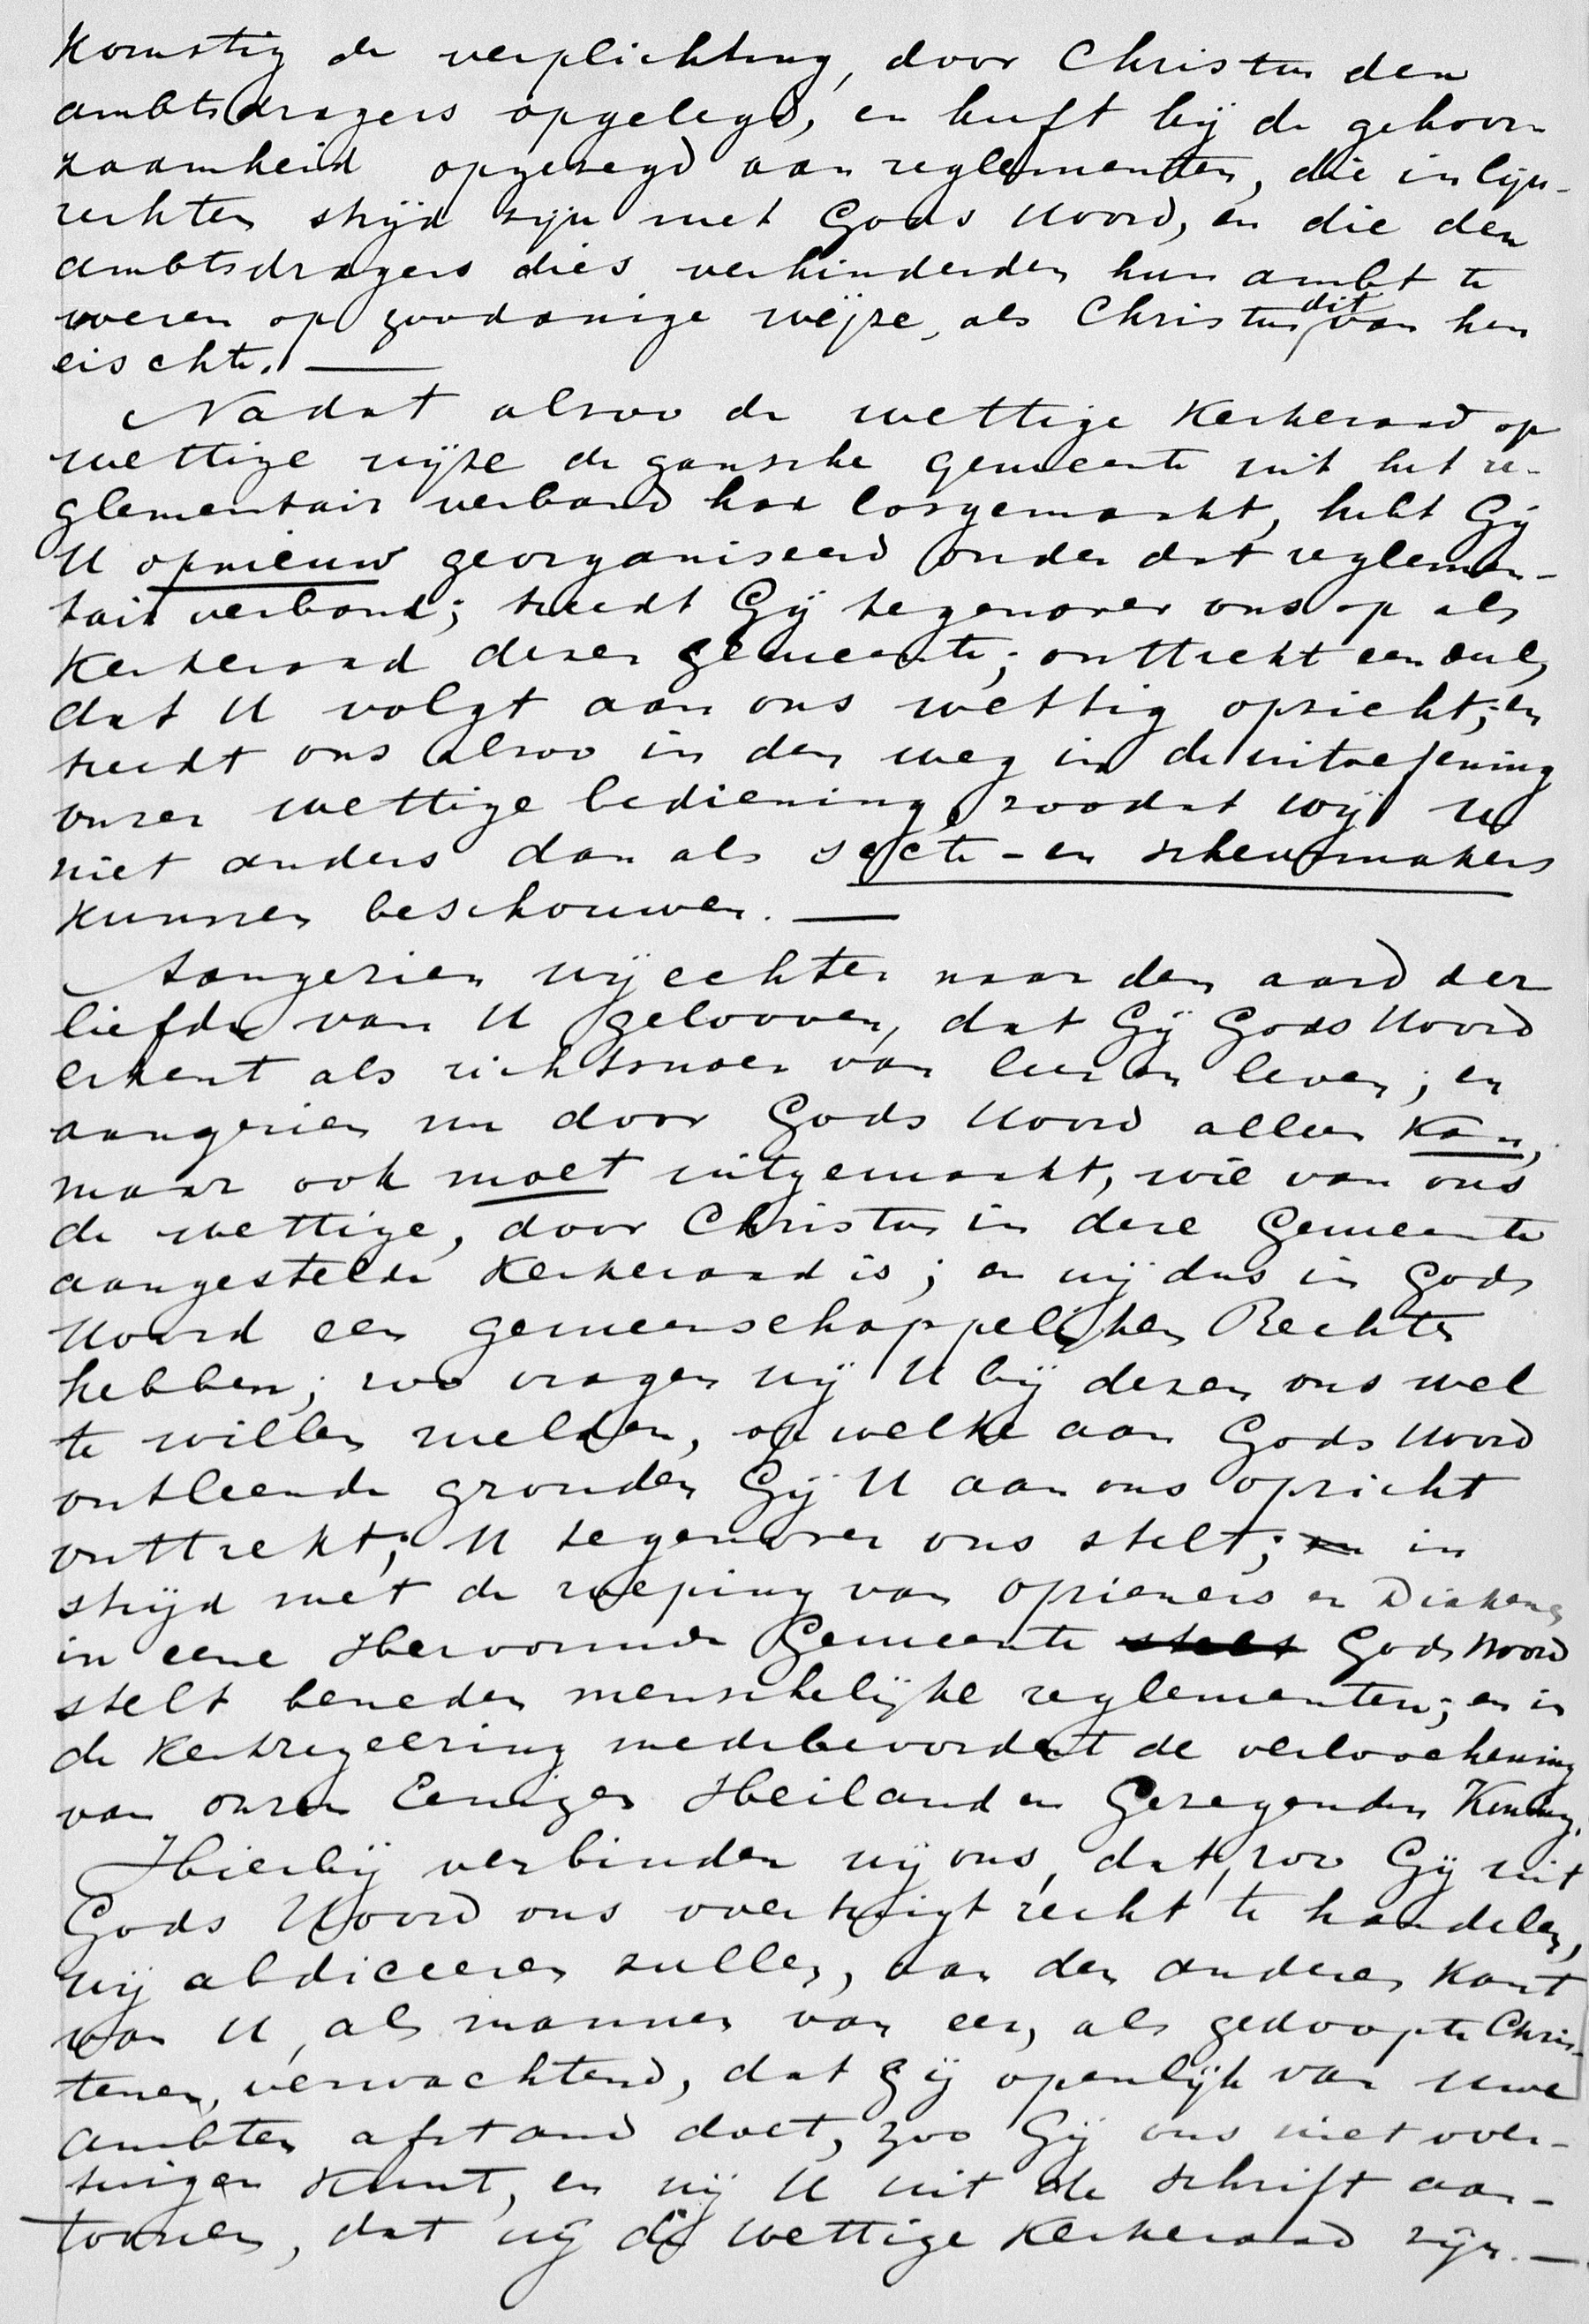 komstig de verplichting, door Christus den
ambtsdragers opgelegd, en heeft hij de gehoor-
zaamheid opgezegd aan reglementen, die in lijn-
rechten strijd zijn met Gods Woord, en die den
ambtsdragers dies verhinderden hun ambt te
voeren op zoodanige wijze, als Christus dit van hen
eischte. —
Nadat alzoo de wettige Kerkeraad op
wettige wijze de gansche gemeente uit het re-
glementair verband had losgemaakt, hebt Gij
U opnieuw georganiseerd onder dat reglemen-
tair verband; treedt Gij tegenover ons op als
Kerkeraad dezer gemeente; onttrekt een deel,
dat U volgt aan ons wettig opzicht; en
treedt ons alzoo in den weg in de uitoefening
onzer wettige bediening, zoodat wij U
niet anders dan als secte- en scheurmakers
kunnen beschouwen. —
Aangezien wij echter naar den aard der
liefde van U gelooven, dat Gij Gods Woord
erkent als richtsnoer van leer en leven; en
aangezien nu door Gods Woord alleen kan,
maar ook moet uitgemaakt, wie van ons
de wettige, door Christus in deze Gemeente
aangestelde Kerkeraad is; en wij dus in Gods
Woord een gemeenschappelijken Rechter
hebben; zoo vragen wij U bij dezen ons wel
te willen melden, op welke aan Gods Woord
ontleende gronden Gij U aan ons opzicht
onttrekt; U tegenover ons stelt; en in
strijd met de roeping van opzieners en Diakens
in eene Hervormde Gemeente stelt Gods Woord
stelt beneden menschelijke reglementen; en in
de Kerkregeering medebevordert de verloochening
van onzen Eenigen Heiland en Gezegenden Koning.
Hierbij verbinden wij ons, dat, zoo Gij uit
Gods Woord ons overtuigt recht te handelen,
wij abdiceeren zullen, aan den anderen kant
van U, als mannen van eer, als gedoopte Chris-
tenen, verwachtend, dat Gij openlijk van uwe
ambten afstand doet, zoo Gij ons niet over-
tuigen kunt, en wij U uit de schrift aan-
toonen, dat wij de wettige Kerkeraad zijn. —